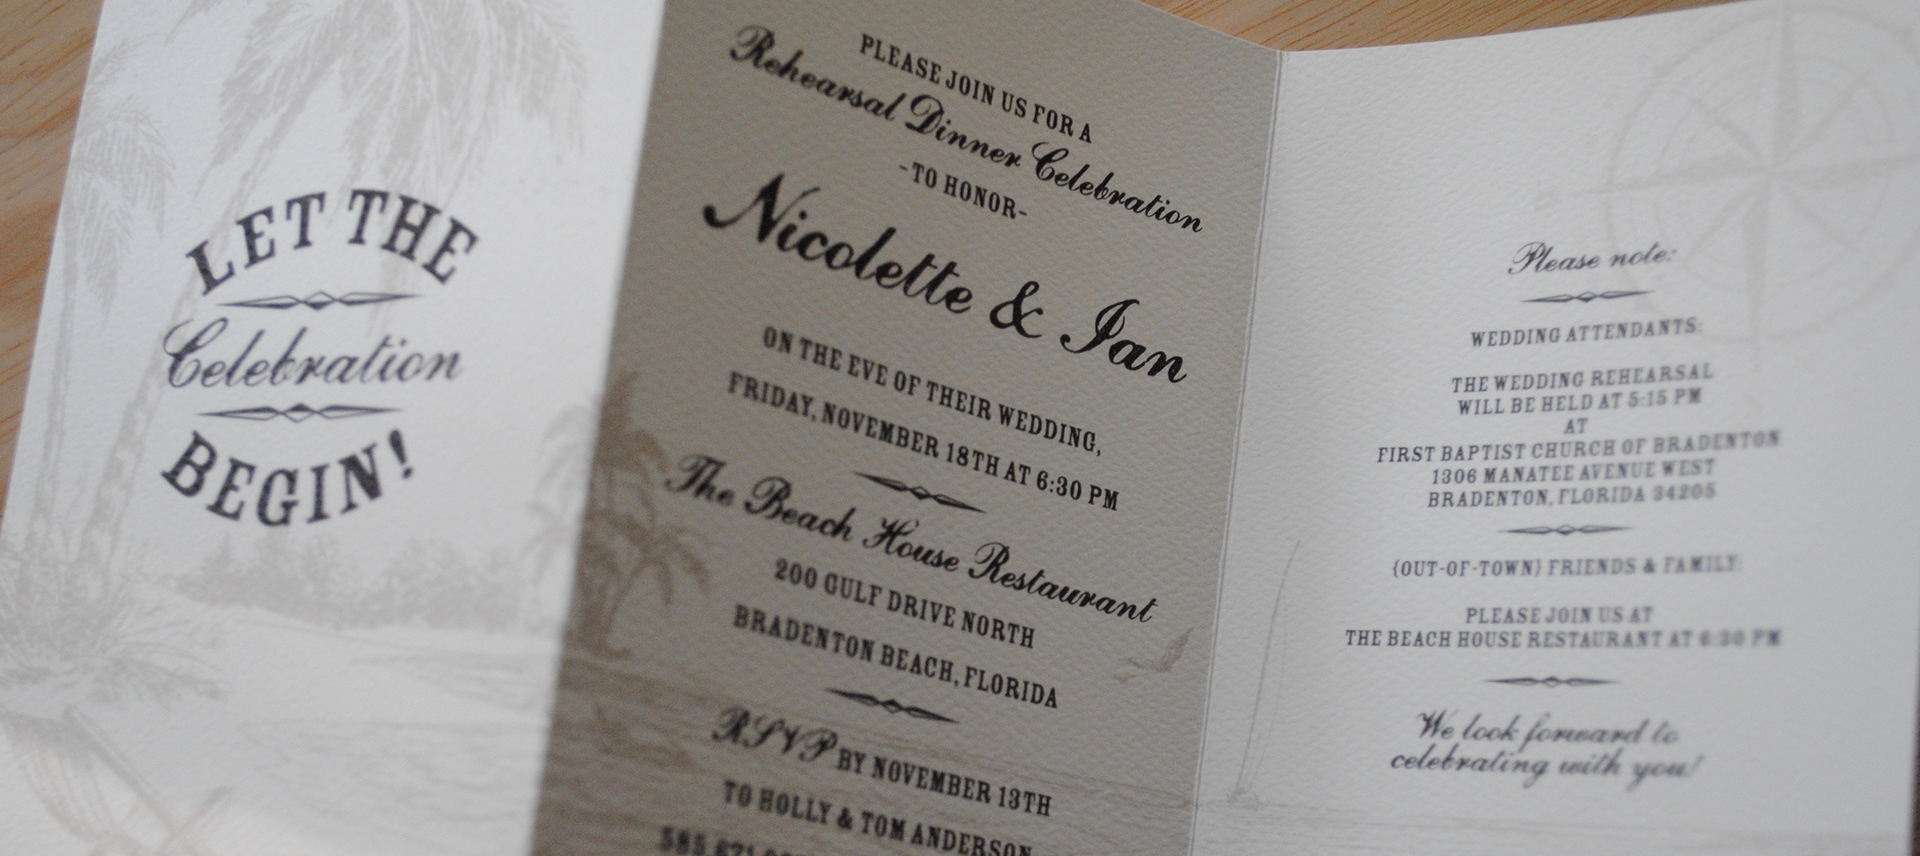 LET THE
Celebration
BEGIN!
PLEASE JOIN US FOR A
Rehearsal Dinner Celebration
-TO HONOR-
Nicolette & Ian
ON THE EVE OF THEIR WEDDING,
FRIDAY, NOVEMBER 18TH AT 6:30 PM
The Beach House Restaurant
200 GULF DRIVE NORTH
BRADENTON BEACH, FLORIDA
RSVP BY NOVEMBER 13TH
TO HOLLY & TOM ANDERSON
Please note:
WEDDING ATTENDANTS:
THE WEDDING REHEARSAL
WILL BE HELD AT 5:15 PM
AT
FIRST BAPTIST CHURCH OF BRADENTON
1306 MANATEE AVENUE WEST
BRADENTON, FLORIDA 34205
{OUT-OF-TOWN} FRIENDS & FAMILY:
PLEASE JOIN US AT
THE BEACH HOUSE RESTAURANT AT 6:30 PM
We look forward to
celebrating with you!